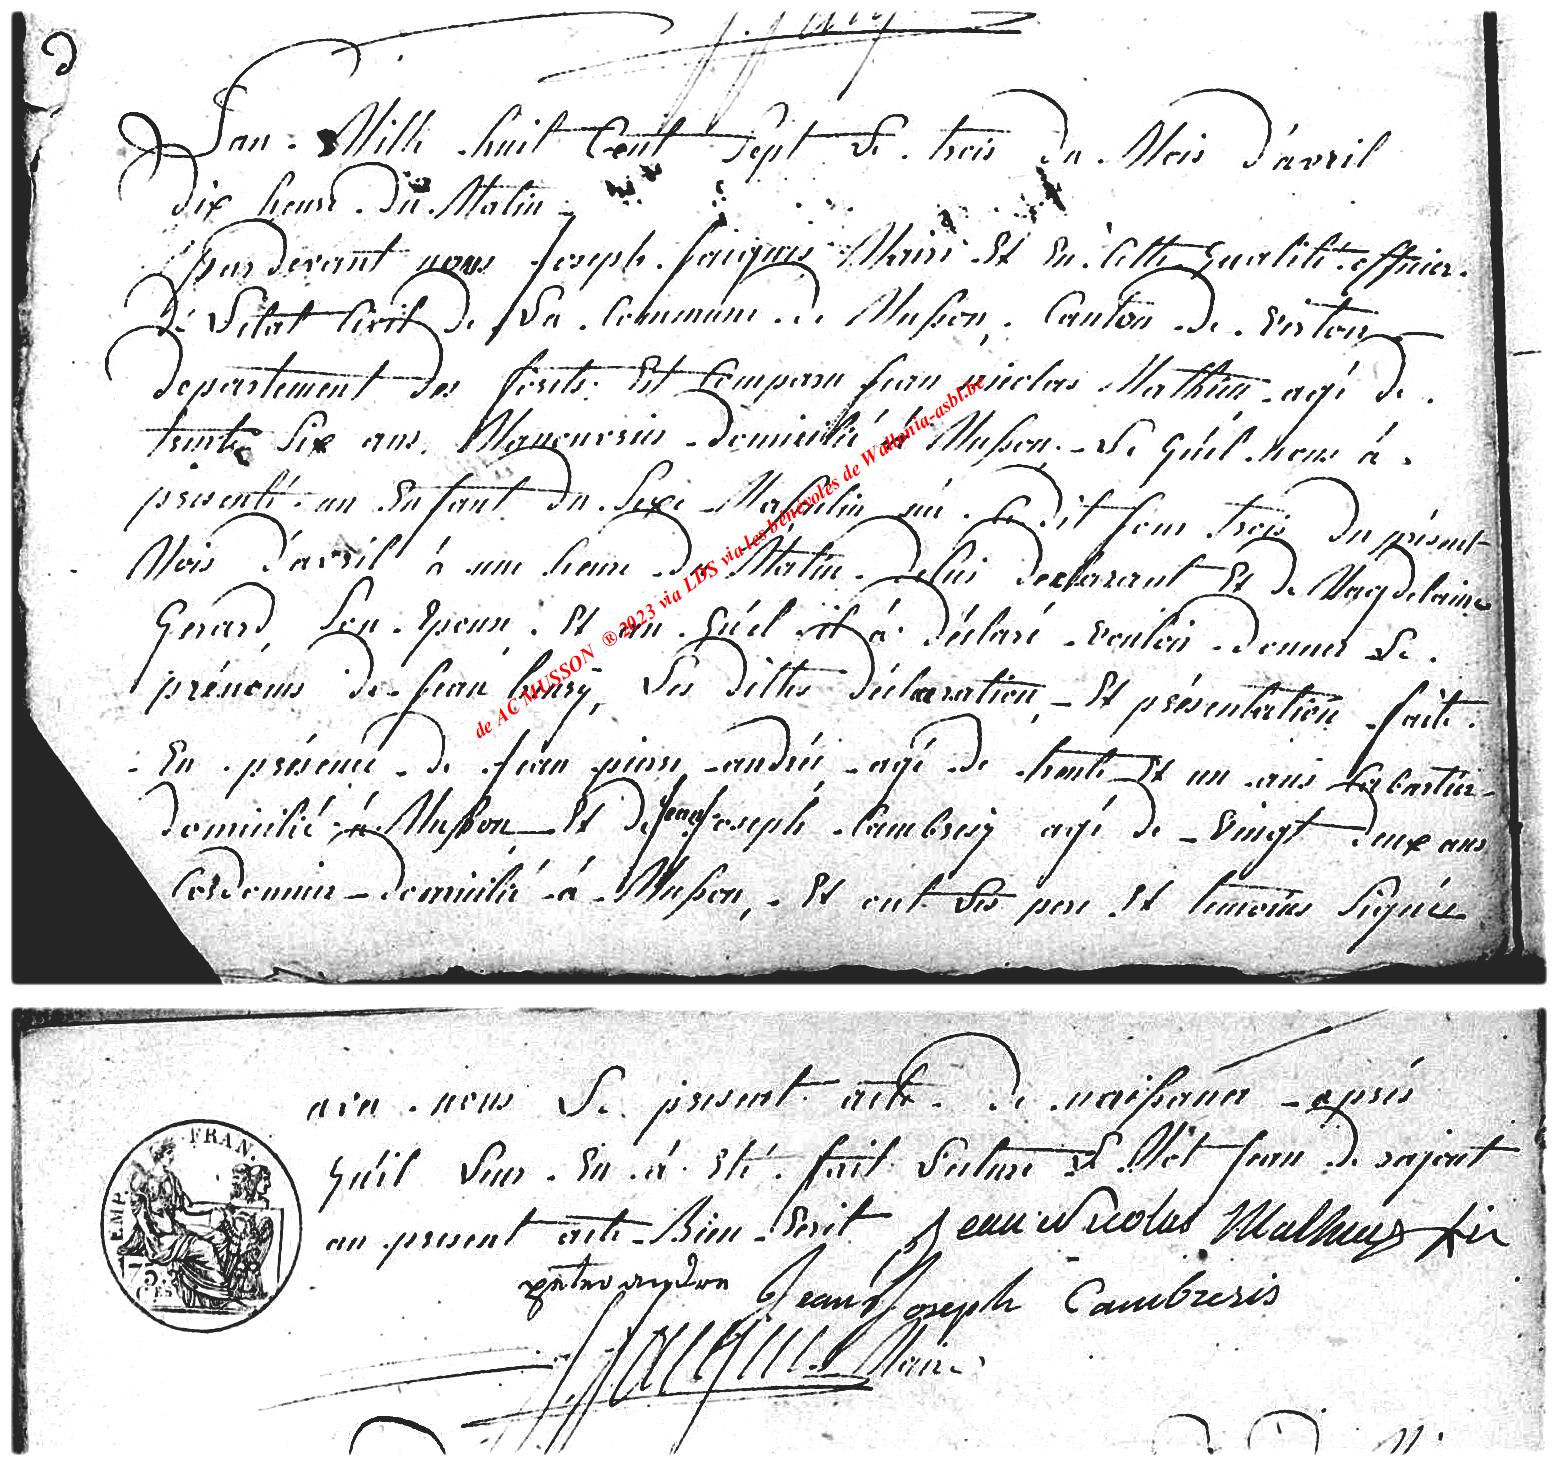 Lan Mille huit Cent Sept Le trois du Mois d'avril
dix heure du Matin
pardevant nous Joseph Jaiquis Maire Et En Cette Qualité officier
de Letat Civil de La Commune de Musson, Canton de Virton
departement des forets Est Comparu Jean nicolas Mathieu agé de
trente Six ans, Manouvrier domicilié à Musson, Le Quél nous à
presenté un Enfant du Sexe Masculin né Ce dit Jour trois du présent
Mois d'avril à une heure du Matin de lui declarant Et de Magdelaine
Gerard, Son Epouse, Et au Quél il à déclaré vouloir donner Le
prénoms de Jean henrÿ, Les dittes déclaration, Et présentation faite
En présence de Jean pierre andré agé de trente Et un ans
domicilié à Musson Et de Jean Joseph Cambresÿ agé de Vingt deux ans
Cordonnier domicilié à Musson, Et ont Les pere Et temoins Signée
avec nous Le present acte de naissance après
Qu'il Leur En à Eté fait Lecture Le Mót Jean de rajout
au present acte Bien Ecrit Jean Nicolas Mathieu
Jean Joseph Cambresis
Maire
de AC MUSSON ® 2023 via LDS via les bénévoles de Wallonia-asbl.be
EMP. FRAN.
75
CES